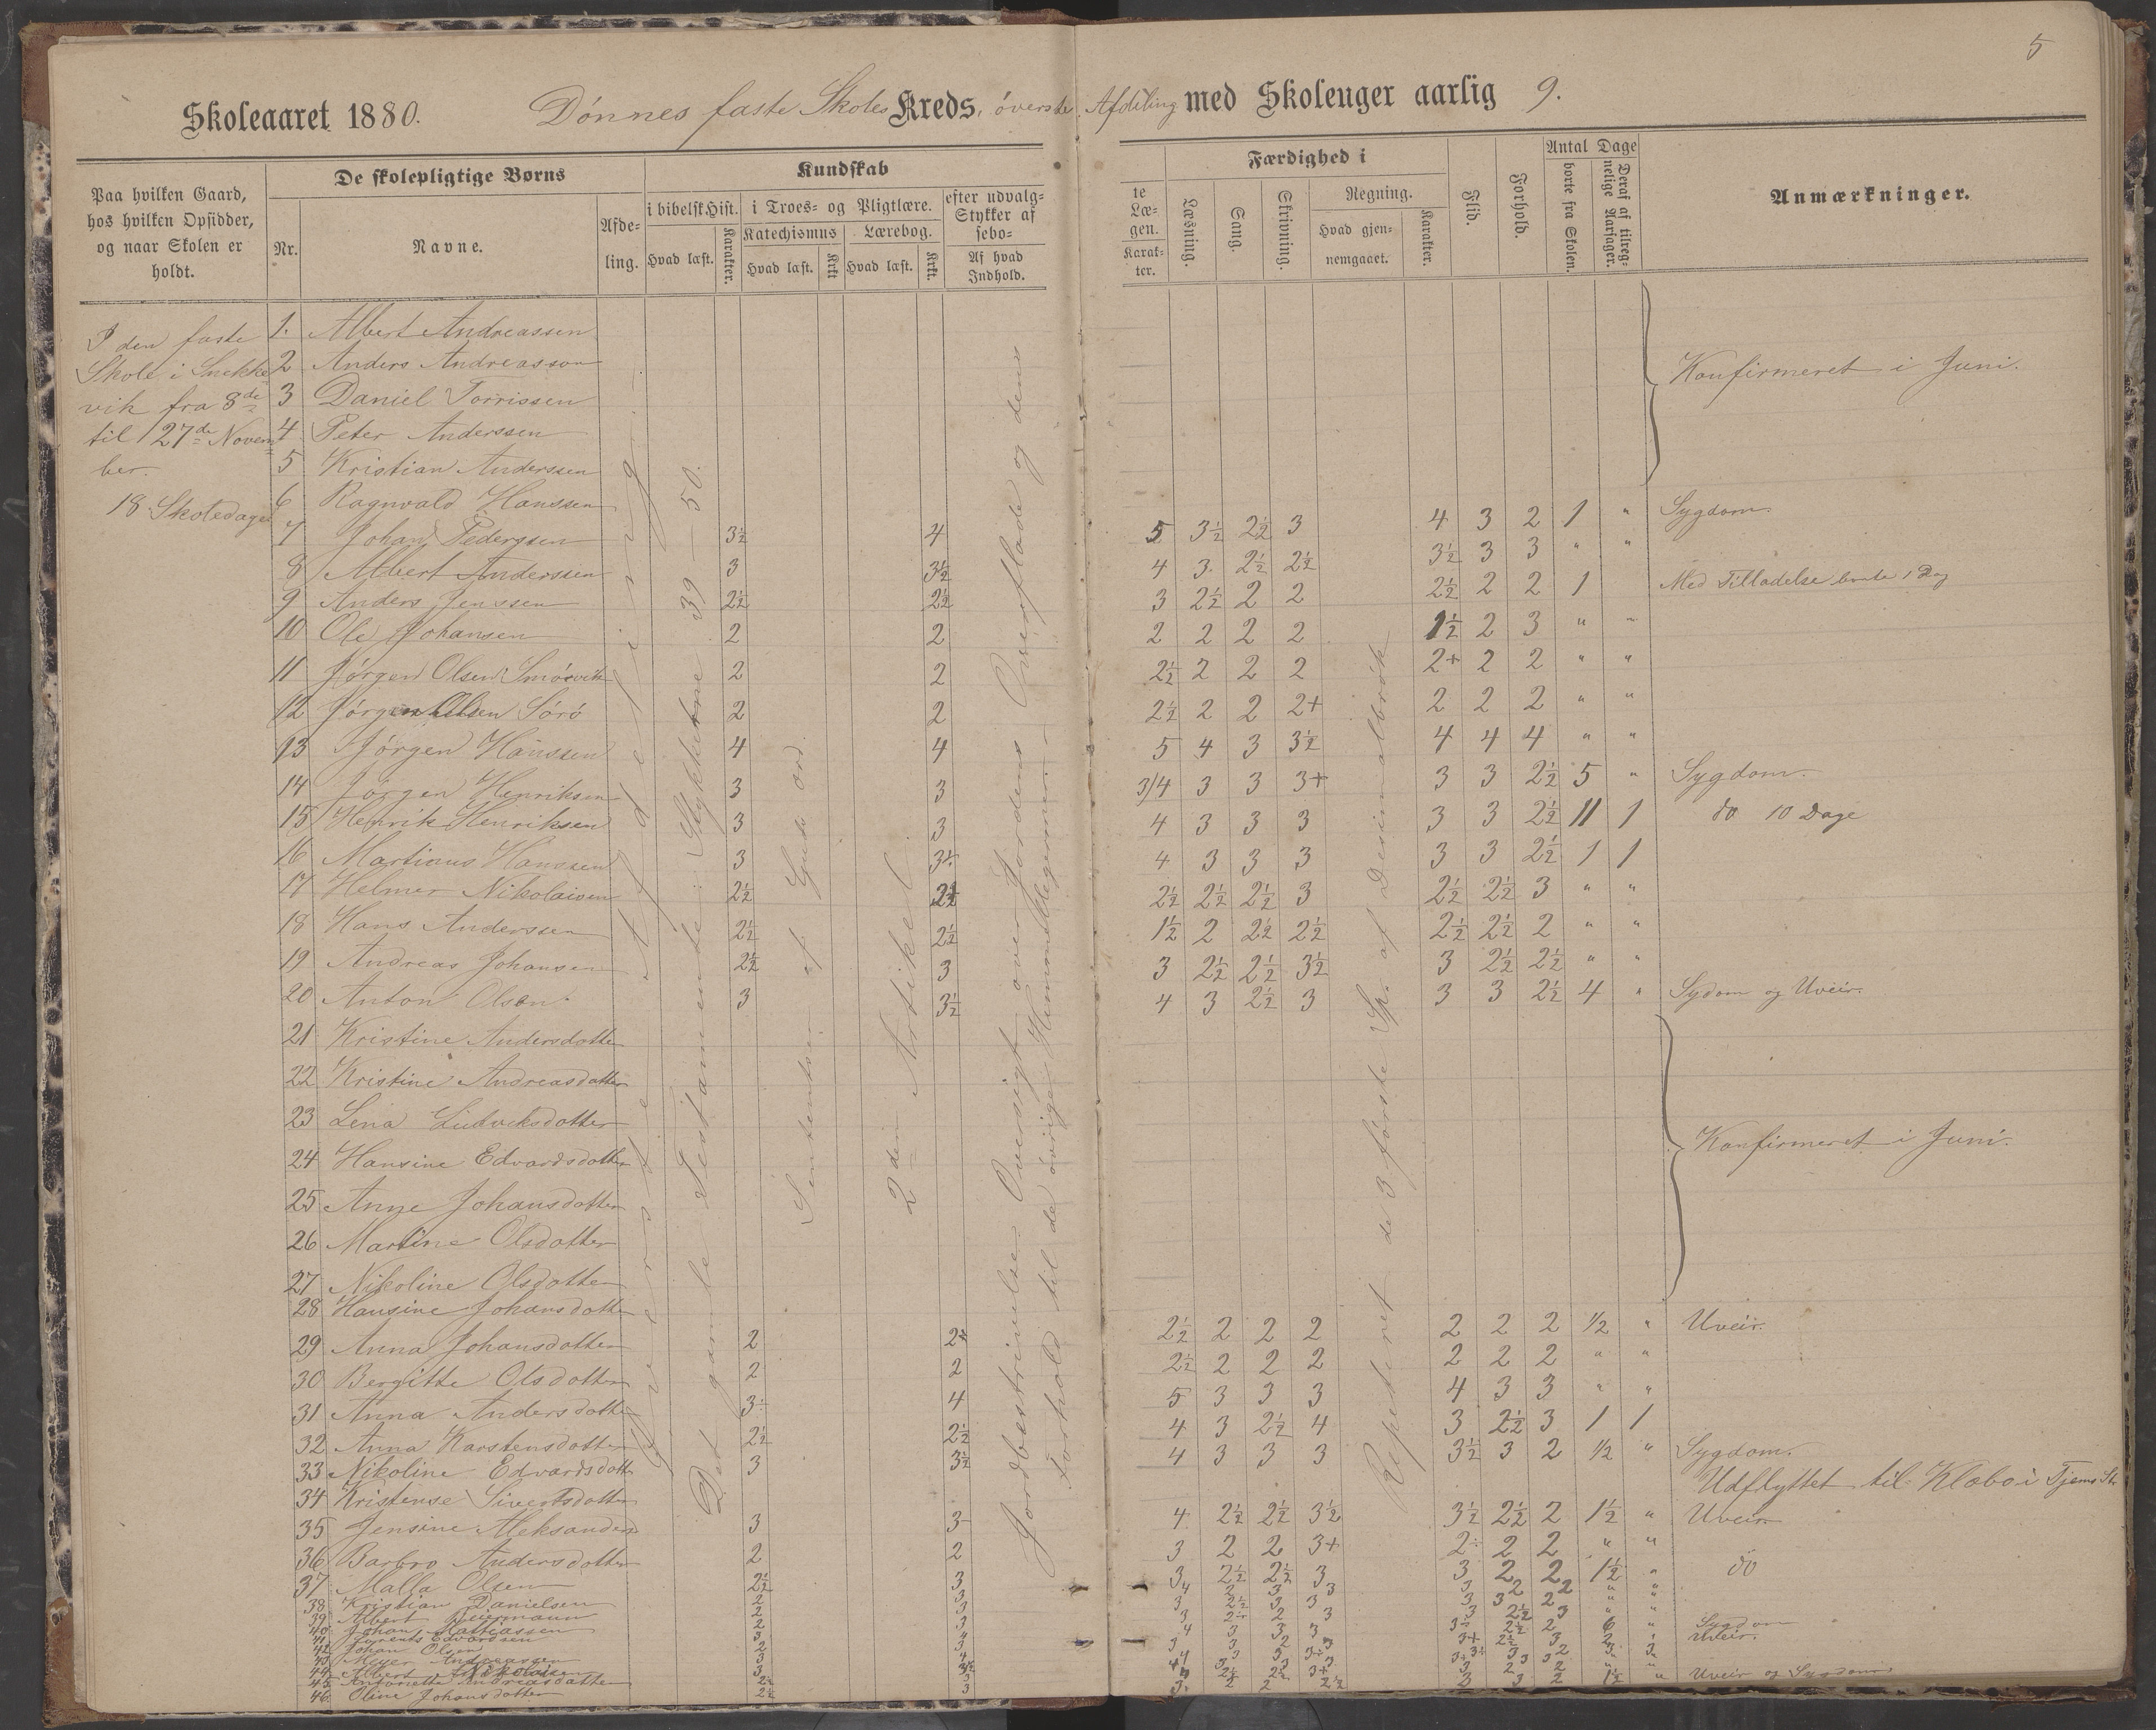 5
Skoleaaret 1880. Dønnes faste Skoles Kreds, øverste Afdeling med Skoleuger aarlig 9.
Paa hvilken Gaard, hos hvilken Opsidder, og naar Skolen er holdt.
De skolepligtige Børns
Nr.
Navne.
Afdeling.
Kundskab
i bibelsk Hist.
Hvad læst.
Karakter.
i Troes- og Pligtlære.
Katechismus
Hvad læst.
Krkt
Lærebog.
Hvad læst.
Krkt.
efter udvalg-
Stykker af
sebo-
Af hvad Indhold.
te
Læ-
gen.
Karak-
ter.
Færdighed i
Læsning.
Sang.
Skrivning.
Regning.
Hvad gjen-
nemgaaet.
Karakter.
Flid.
Forhold.
Antal Dage
borte fra Skolen.
Deraf af tilreg-
nelige Aarsager.
Anmærkninger.
I den faste
Skole i Snekke
vik fra 8de
til 27de Novem
ber.
18 Skoledage
Øverste Afdeling
Det gamle Testamente: Stykkerne 39 — 50.
Guds ord
2den Artikel
Jordbeskrivelse: Oversigt over Jordens Overflade og dens
Forhold til de øvrige Himmellegemer.
Repeteret de 3 første Sp. af Desimalbrøk
1. Albert Andreassen
2 Anders Andreasson
3 Daniel Torrissen
4 Peter Anderssen
5 Kristian Anderssen
Konfirmeret i Juni.
6 Ragnvald Hanssen
7 Johan Pederssen 3½ 4 5 3½ 2½ 3 4 3 2 1 " Sygdom.
8 Albert Anderssen 3 3½ 4 3 2½ 2½ 3½ 3 3 " "
9 Anders Jenssen 2½ 2½ 3 2½ 2 2 2½ 2 2 1 Med Tilladelse borte 1 Dag
10 Ole Johansen 2 2 2 2 2 2 1½ 2 3 " "
11 Jørgen Olsen Smørvik 2 2 2½ 2 2 2 2+ 2 2 " "
12 Jørgen Olsen Sørø 2 2 2½ 2 2 2+ 2 2 2 " "
13 Jørgen Hanssen 4 4 5 4 3 3½ 4 4 4 " "
14 Jørgen Henriksen 3 3 3/4 3 3 3+ 3 3 2½ 5 " Sygdom.
15 Henrik Henriksen 3 3 4 3 3 3 3 3 2½ 11 1 do 10 Dage
16 Martinus Hanssen 3 3÷ 4 3 3 3 3 3 2½ 1 1
17 Helmer Nikolaisen 2½ 2½ 2½ 2½ 2½ 3 2½ 2½ 3 " "
18 Hans Anderssen 2½ 2½ 1½ 2 2½ 2½ 2½ 2½ 2 " "
19 Andreas Johansen 2½ 3 3 2½ 2½ 3½ 3 2½ 2½ " "
20 Anton Olsen 3 3½ 4 3 2½ 3 3 3 2½ 4 " Sydom og Uveir.
21 Kristine Andersdatter
22 Kristine Andreasdatter
23 Lena Ludviksdotter
24 Hansine Edvardsdotter
25 Anne Johansdotter
26 Martine Olsdotter
27 Nikoline Olsdotter
Konfirmeret i Juni.
28 Hansine Johansdotter
29 Anna Johansdotter 2 2÷ 2½ 2 2 2 2 2 2 ½ " Uveir.
30 Bergitte Olsdotter 2 2 2½ 2 2 2 2 2 2 " "
31 Anna Andersdotter 3÷ 4 5 3 3 3 4 3 3 " "
32 Anna Karstensdotter 2½ 2½ 4 3 2½ 4 3 2½ 3 1 1
33 Nikoline Edvardsdott 3 3½ 4 3 3 3 3½ 3 2 ½ " Sygdom.
34 Kristense Sivertsdotter Udflyttet til
35 Jensine Aleksanders 3 3 4 2½ 2½ 3½ 3½ 2½ 2 1½ " Uveir
36 Barbro Andersdotter 2 2 3 2 2 3+ 2÷ 2 2 " "
37 Malla Olsen 2½ 3 3 2½ 2½ 3 3 2 2 1½ " do
38 Kristian Danielsen
39 Albert
40 Johan Mattiassen
41 Edvardsen
42 Johan Olsen
43 Meyer Andreassen
44 Albert Nikolaisen
45 Antonette Andreasdatter
46 Oline Johansdotter
Sygdom
Uveir.
Uveir og Sygdom